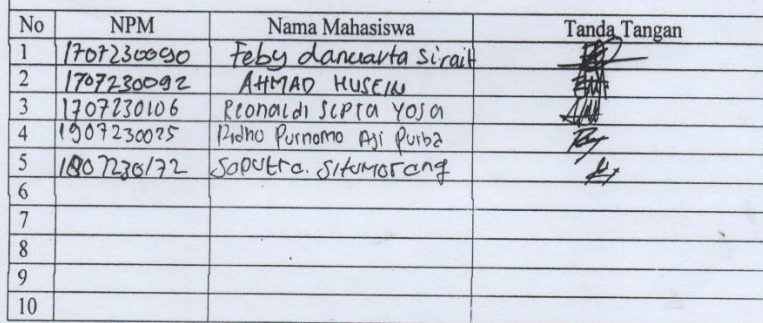 No NPM Nama Mahasiswa Tanda Tangan
1 1707230090 Feby dancuarta Sirait
2 1707230092 AHMAD HUSEIN
3 1707230106 Reonaldi Septa Yosa
4 1907230025 Ridho Purnomo Aji Purba
5 1807230172 Saputra. Situmorang
6
7
8
9
10